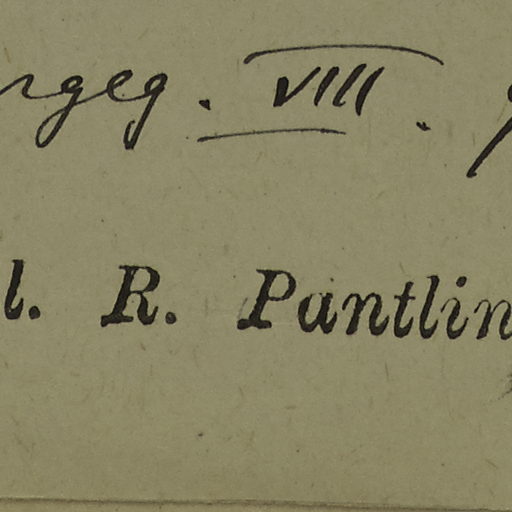 rgeg. VIII.
l. R. Pantlin